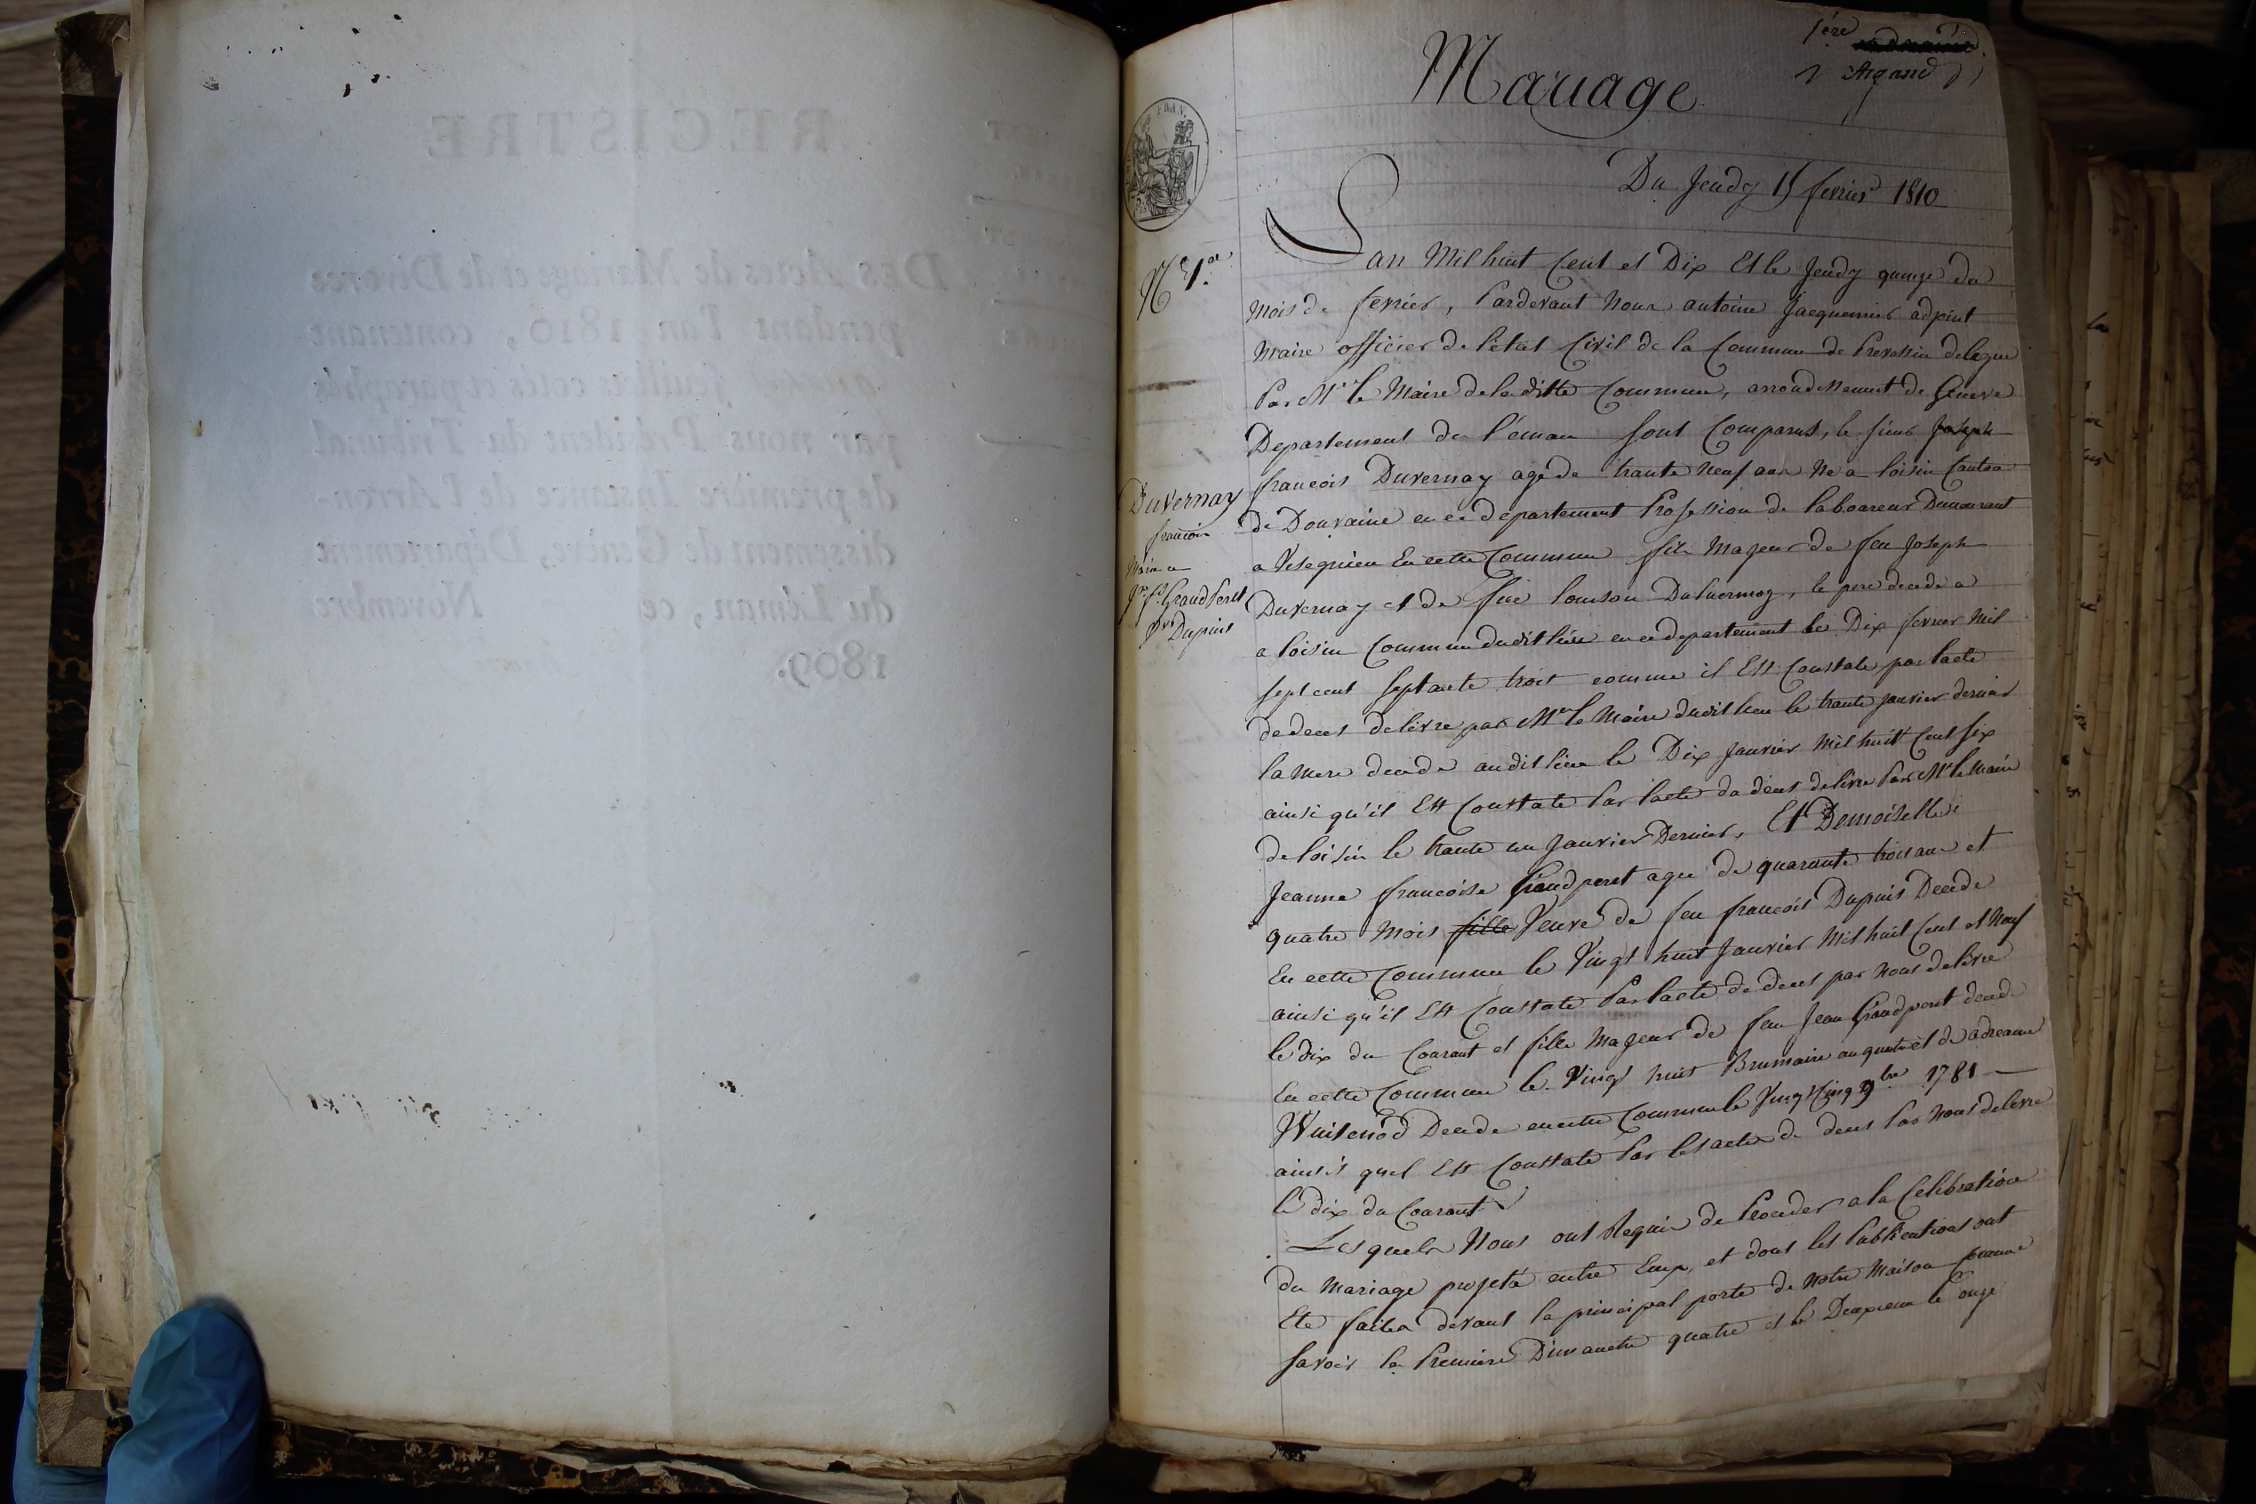 REGISTRE
Des Actes de Mariage et de Divorce
pendant l'an 1810, contenant
feuillets cotés et paraphés
par nous Président du Tribunal
de première Instance de l'Arron-
dissement de Genève, Département
du Léman, ce Novembre
1809.
1ére
1 Argand
Mariage
Du Jeudy 15 fevrier 1810
N° 1er
Lan Mil huit Cent et Dix Et le Jeudy quinze du
Mois de fevrier, Pardevant Nous antoine Jacquemier adjoint
Maire officier de l'état Civil de la Commune de Prevessin delegue
Par Mr le Maire de la ditte Commune, arrondissement de Geneve
Departement du Léman sont Comparus, le sieur Joseph
francois Duvernay age de trante neuf ans Ne a loisin Canton
de Douvaine en ce departement Profession de laboureur Demeurant
a Vesegnien En cette Commune fils Majeur de feu Joseph
Duvernay et de feue louison , le pere decede a
a loisin Commune dudit lieu en ce departement le Dix fevrier Mil
sept cent septante trois comme il Est Constate par lacte
de deces delivre par Mr le Maire dudit lieu le trante janvier dernier
la Mere decede audit lieu le Dix janvier Mil huit Cent six
ainsi qu'il Est Constate Par lacte de deces delivre Par Mr le Maire
de loisin le trante un Janvier Dernier, Et Demoiselle
Jeanne francoise Grandperet agee de quarante trois ans et
quatre Mois fille Veuve de feu francois Dupuis Decede
En cette Commune le Vingt huit Janvier Mil huit Cent et Neuf
ainsi qu'il Est Constate Par lacte de deces par Nous delivre
le dix du Courant et fille Majeur de feu Jean Grandperet decede
En cette Commune le Vingt huit Brumaire an quatre et de adreanne
Wuilenod Decede en cette Commune le Vingt Cinq 9bre 1781
ainsis quel Est Constate Par les actes de deces Par Nous delivre
le dix du Courant
Lesquels Nous ont Requis de Proceder a la Celebration
du Mariage projeté entre Eux, et dont les Publications ont
Ete faites devant la principal porte de Notre Maison Commune
Savoir la Premiere Dimanche quatre et la Deuxieme le onze
Duvernay
francois
Marie a
Jne fse Grand Peret
Vve Dupuis